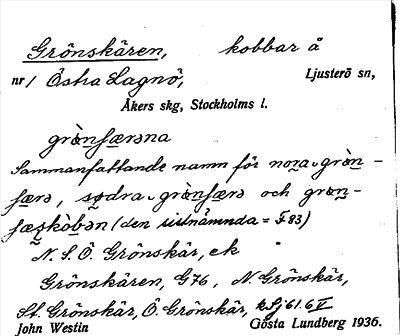 Grönskären, kobbar å
nr 1 Östra Lagnö, Ljusterö sn,
Åkers skg, Stockholms l.
grò̱nfærəna
Sammanfattande namn för no̱ra grò̱n-
færə, sø̱dra grò̱nfærə och grøn-
fæʂkò̱bən (den sistnämnda = F 83)
N. S. Ö. Grönskär, ek
Grönskären, G76, N. Grönskär,
St. Grönskär, Ö. Grönskär, kSj 61.6 V
John Westin Gösta Lundberg 1936.